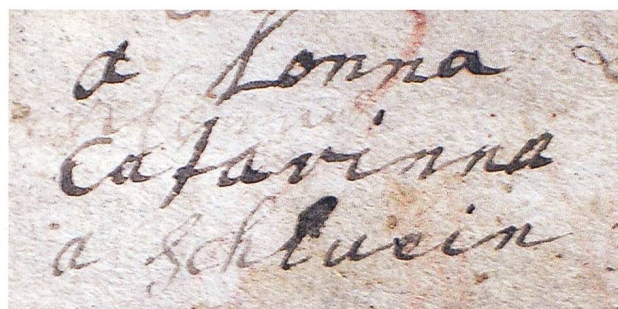 a lonna
Catarinna
a Schluein